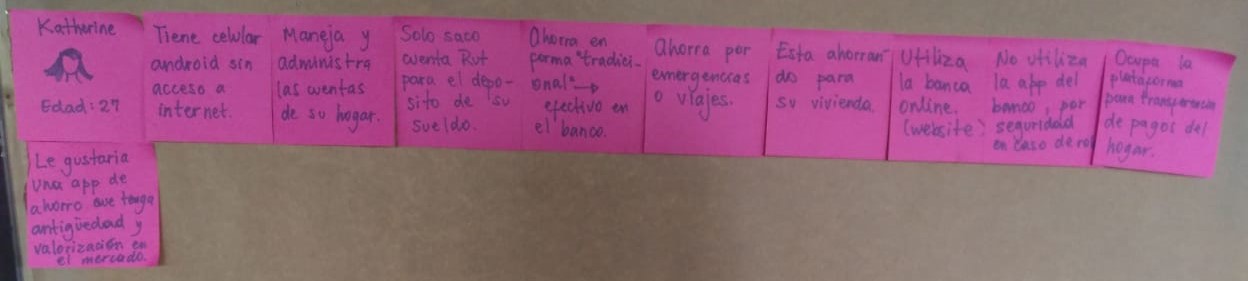 Katherine
Edad: 27
Tiene celular
android sin
acceso a
internet.
Maneja y
administra
las cuentas
de su hogar.
Solo saco
cuenta Rut
para el depo-
sito de su
sueldo.
Ahorra en
forma "tradici-
onal" →
efectivo en
el banco.
Ahorra por
emergencias
o viajes.
Esta ahorran-
do para
su vivienda.
Utiliza
la banca
online.
(website)
No utiliza
la app del
banco, por
seguridad
en caso de ro
Ocupa la
plataforma
para transferencia
de pagos del
hogar.
Le gustaria
una app de
ahorro que tenga
antigüedad y
valorización en
el mercado.